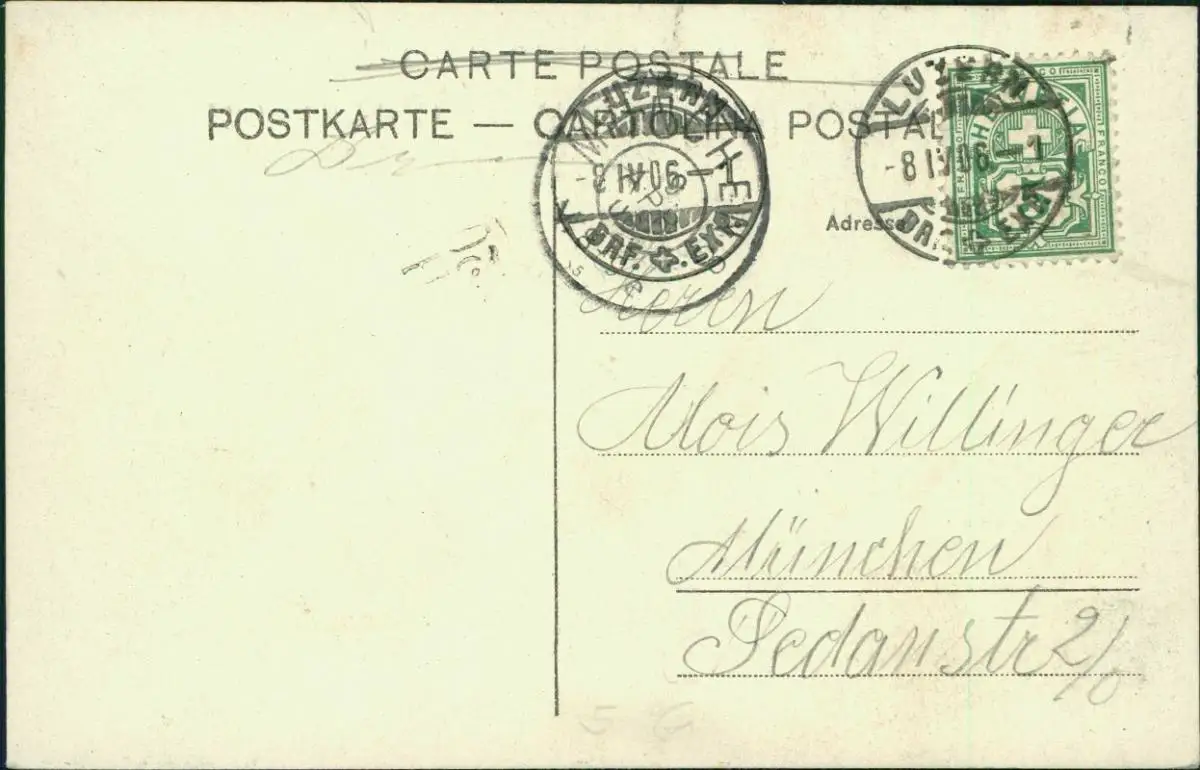 CARTE POSTALE
POSTKARTE — CARTOLINA POSTALE
LUZERN
-8 IV 06 -1
BRF. EXP.
LUZERN
-8 IV 06 -1
BRF. EXP.
HELVETIA
FRANCO
5
Adresse
Herrn
Alois Willinger
München
Sedanstr 2/0
5 G